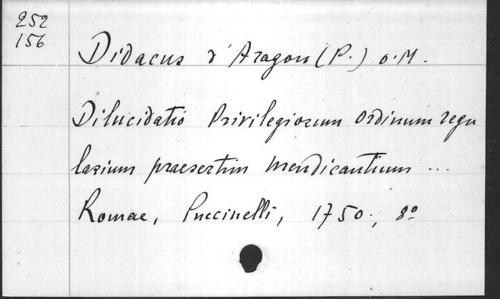 252
156
Didacus d'Aragon (P.) o. M.
Dilucidatio Privilegiorum ordinum regu
larium praesertim mendicantium ...
Romae, Puccinelli, 1750., 8º